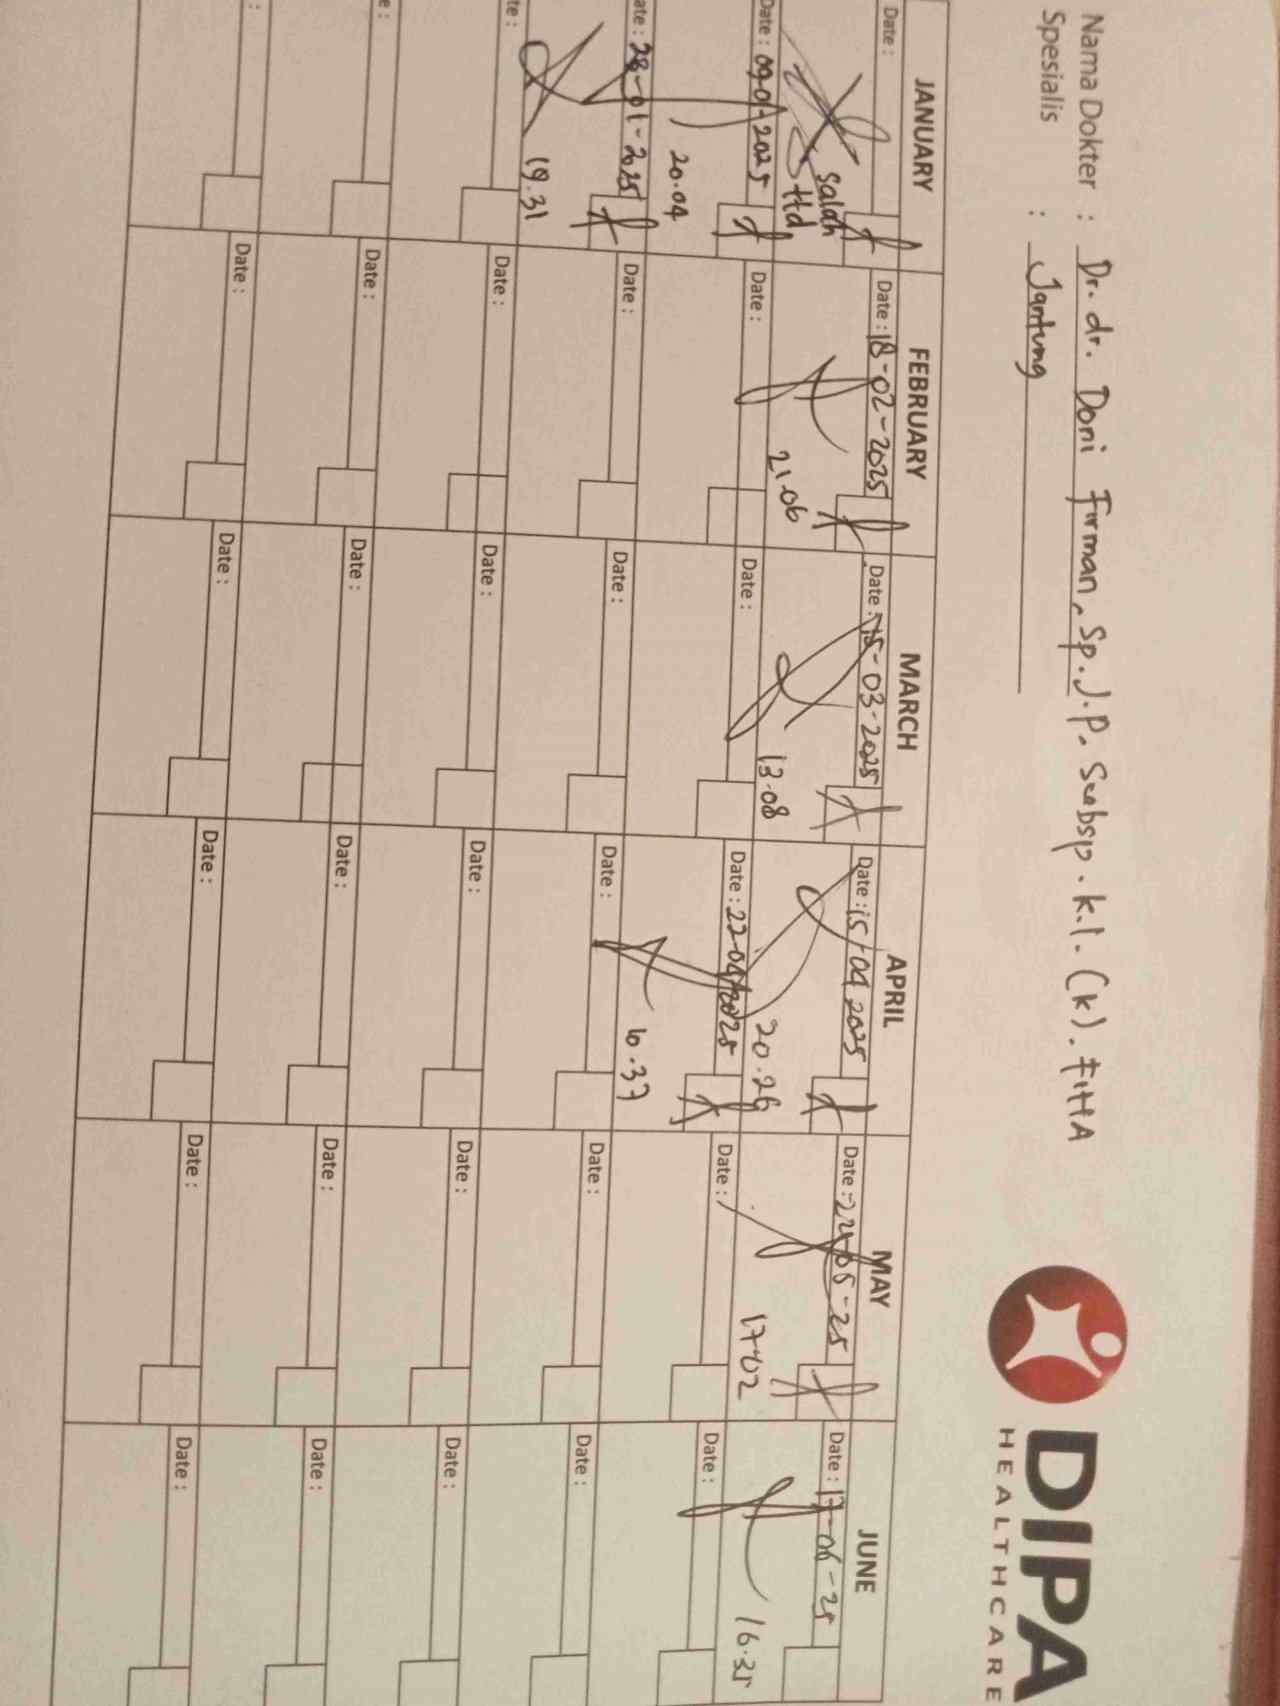 Nama Dokter : Dr. dr. Doni Firman, Sp.J.P. Subsp. k.I. (k). FIHA
Spesialis : Jantung
DIPA
HEALTHCARE
JANUARY FEBRUARY MARCH APRIL MAY JUNE
Date : Date : 18-02-2025 Date : 15-03-2025 Date : 15-04 2025 Date : 22-05-25 Date : 17-06-25
Salah
Hd
21.06 13.08 20.26 17.02 16.35
Date : 09-01-2025 Date : Date : Date : 22-04-2025 Date : Date :
20.04 16.37
ate : 28-01-2025 Date : Date : Date : Date : Date :
19.31
te : Date : Date : Date : Date : Date :
e : Date : Date : Date : Date : Date :
: Date : Date : Date : Date : Date :